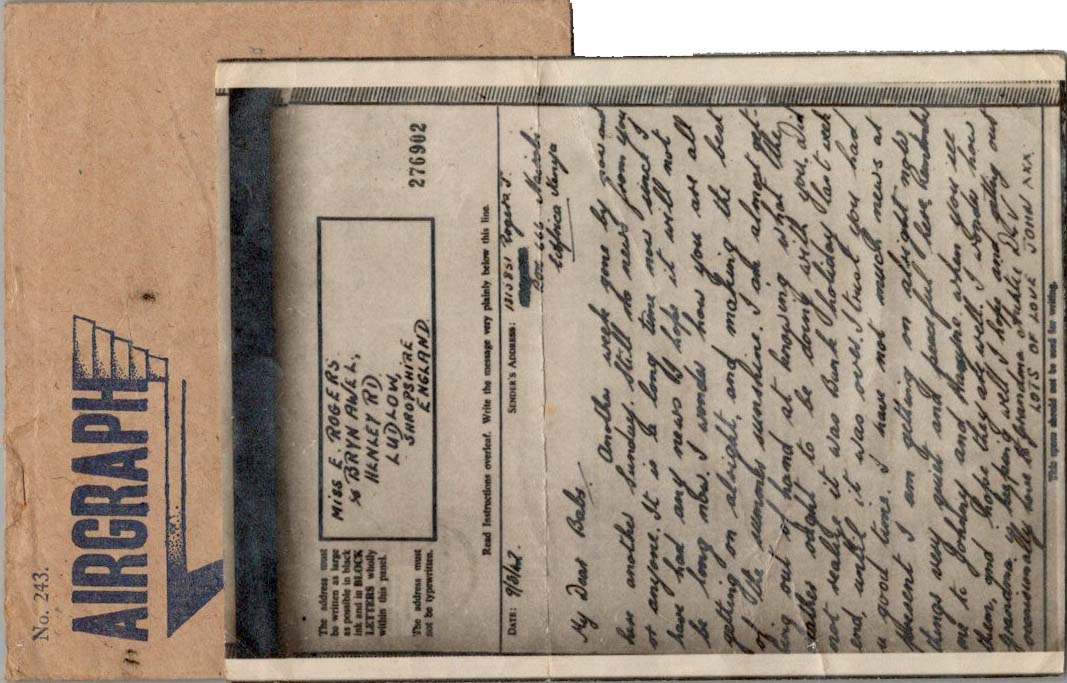 No. 243.
AIRGRAPH
The address must
be written as large
as possible in black
ink and in BLOCK
LETTERS wholly
within this panel.
The address must
not be typewritten.
MISS E. ROGERS
% BRYN AWEL,
HENLEY RD
LUDLOW,
SHROPSHIRE
ENGLAND
276902
Read Instructions overleaf. Write the message very plainly below this line.
DATE:
SENDER'S ADDRESS: 1315851 Rogers J.
Box 666 Nairobi
Africa Kenya
My Dear Babs
Another week gone by now and
here another Sunday. Still no news from you
or anyone. It is a long time now since I
have had any news so hope it will not
be long now. I wonder how you are all
getting on alright, and making the best
of the summer sunshine. I am almost get-
ting out of hand at knowing what the
weather ought to be doing with you. Did
not realise it was Bank Holiday last week
end until it was over. I trust you had
a good time. I have not much news at
present I am getting on alright and
things very quiet and peaceful here. Remember
me to Johnny and when you see
them, and hope they are well. I wonder how
grandma is keeping, well I hope and getting out
occasionally love to grandma Auntie
LOTS OF LOVE JOHN XXX
This space should not be used for writing.